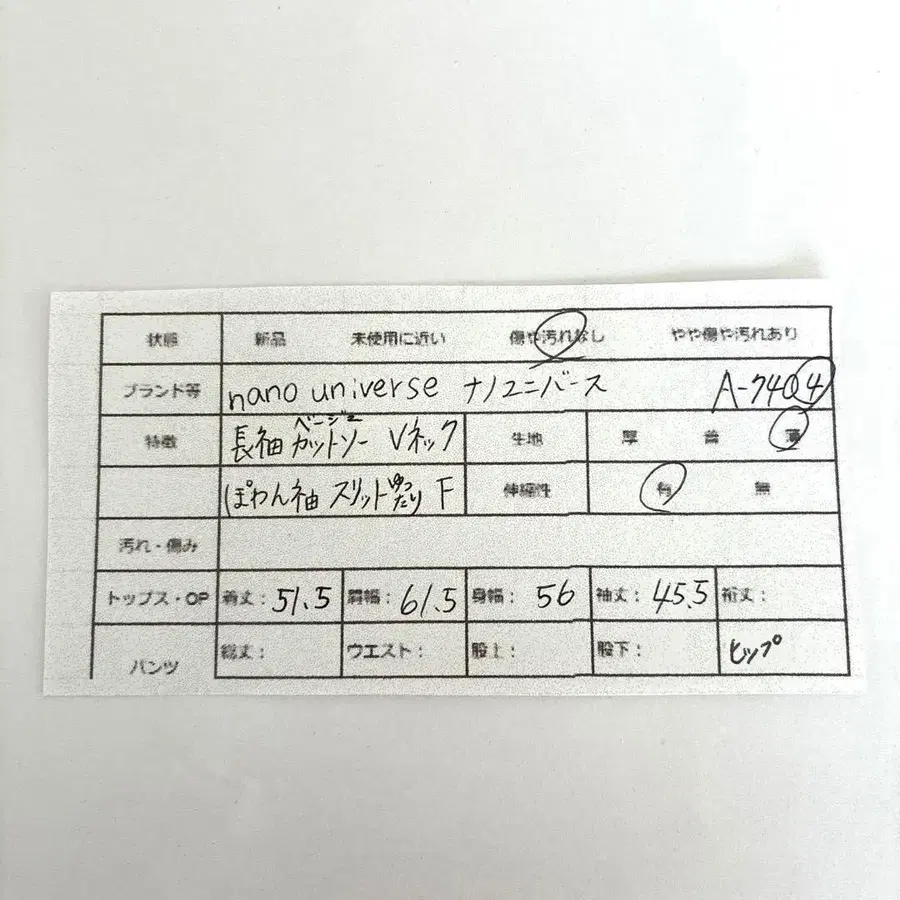 状態 新品 未使用に近い 傷や汚れなし やや傷や汚れあり
ブランド等 nano universe ナノユニバース A-7404
ベージュ
特徴 長袖 カットソー Vネック 生地 厚 普 薄
ぽわん袖 スリット ゆったり F 伸縮性 有 無
汚れ・傷み
トップス・OP 着丈: 51.5 肩幅: 61.5 身幅: 56 袖丈: 45.5 裄丈:
パンツ 総丈: ウエスト: 股上: 股下: ヒップ